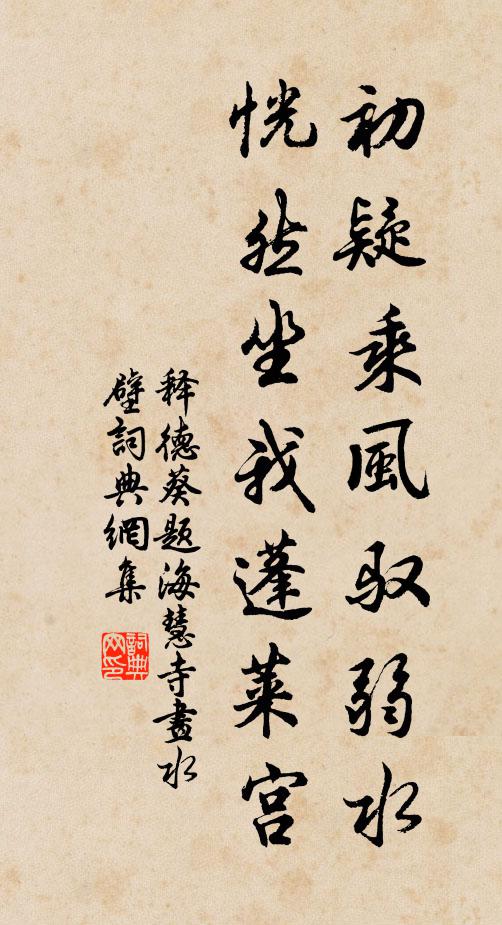 初疑乘風馭弱水
恍然坐我蓬莱宫
释德葵题海慧寺畫水
壁詞典網集
詞典網印